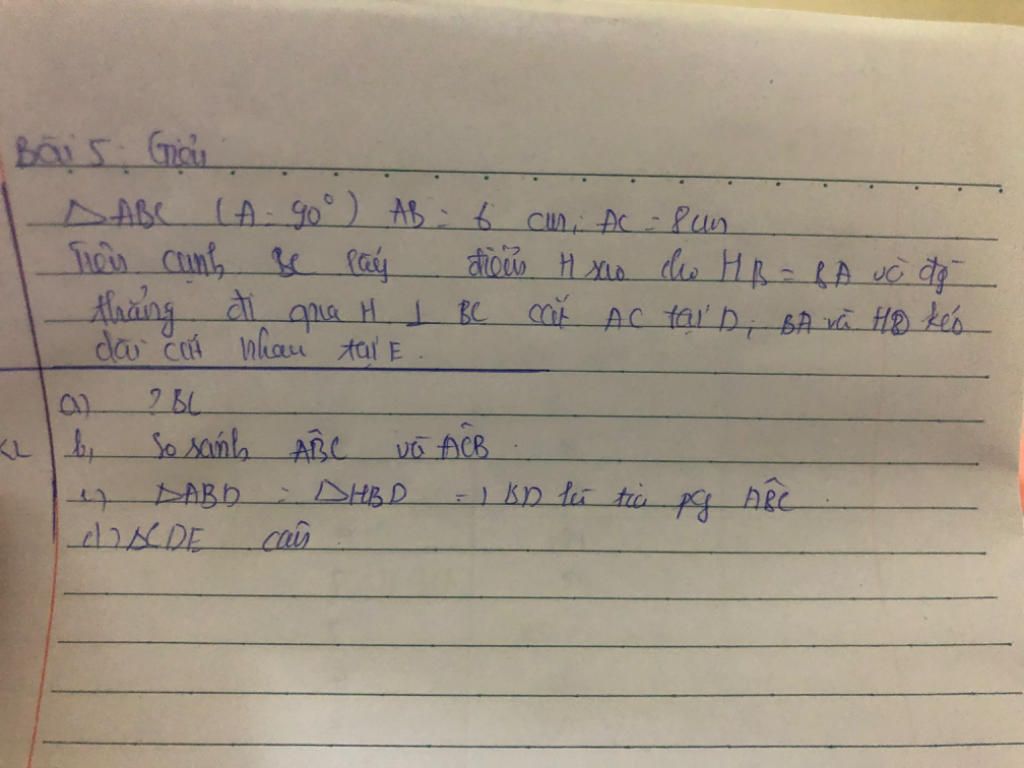 Bài 5: Giải
△ABC (A = 90°) AB = 6 cm; AC = 8cm
Trên cạnh BC lấy điểm H sao cho HB = BA và đg̀
thẳng đi qua H ⊥ BC cắt AC tại D; BA và HD kéo
dài cắt nhau tại E.
a) ? BC
KL b, So sánh AB̂C và AĈB.
c) △ABD = △HBD => BD là tia pg AB̂C.
d) △CDE cân